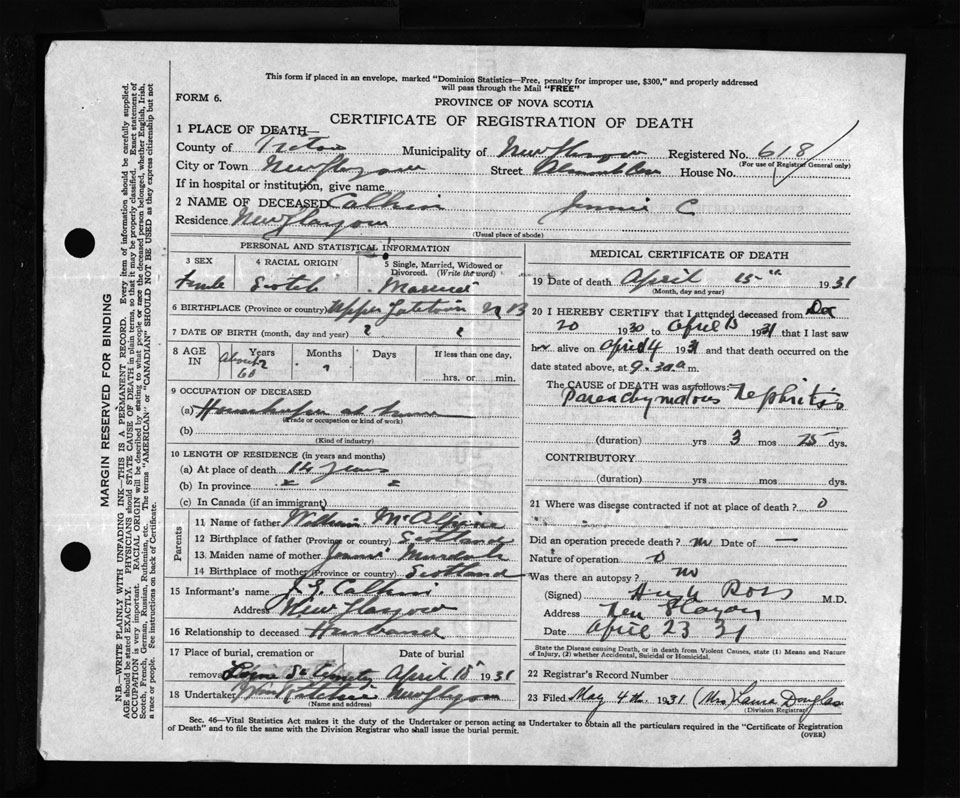 This form if placed in an envelope, marked "Dominion Statistics—Free, penalty for improper use, $300," and properly addressed
will pass through the Mail "FREE"
FORM 6.
PROVINCE OF NOVA SCOTIA
CERTIFICATE OF REGISTRATION OF DEATH
1 PLACE OF DEATH—
County of Pictou Municipality of New Glasgow Registered No. 618
(For use of Registrar General only)
City or Town New Glasgow Street House No.
If in hospital or institution, give name
2 NAME OF DECEASED Calkin Jennie C
Residence New Glasgow
(Usual place of abode)
PERSONAL AND STATISTICAL INFORMATION
3 SEX 4 RACIAL ORIGIN 5 Single, Married, Widowed or Divorced. (Write the word)
Female Scotch Married
6 BIRTHPLACE (Province or country) Upper N B
7 DATE OF BIRTH (month, day and year) ? ?
8 AGE IN Years Months Days If less than one day,
About 60 ? hrs. or min.
9 OCCUPATION OF DECEASED
(a) Housekeeper at home
(Trade or occupation or kind of work)
(b)
(Kind of industry)
10 LENGTH OF RESIDENCE (in years and months)
(a) At place of death 14 years
(b) In province
(c) In Canada (if an immigrant)
Parents
11 Name of father McAlpine
12 Birthplace of father (Province or country) Scotland
13. Maiden name of mother Murdoch
14 Birthplace of mother (Province or country) Scotland
15 Informant's name Calkin
Address New Glasgow
16 Relationship to deceased Husband
17 Place of burial, cremation or removal Date of burial
Cemetery April 18 1931
18 Undertaker New Glasgow
(Name and address)
MEDICAL CERTIFICATE OF DEATH
19 Date of death April 15th 1931
(Month, day and year)
20 I HEREBY CERTIFY that I attended deceased from Dec
20 1930 to April 15 1931 that I last saw
her alive on April 14 1931 and that death occurred on the
date stated above, at 9.30 a m.
The CAUSE of DEATH was as follows: Nephritis
Parenchymatous
(duration) yrs 3 mos 25 dys.
CONTRIBUTORY
(duration) yrs mos dys.
21 Where was disease contracted if not at place of death? 0
Did an operation precede death? no Date of —
Nature of operation 0
Was there an autopsy? no
(Signed) Hugh Ross M.D.
Address New Glasgow
Date April 23 31
State the Disease causing Death, or in Death from Violent Causes, state (1) Means and Nature
of Injury, (2) whether Accidental, Suicidal or Homicidal.
22 Registrar's Record Number
23 Filed May 4th 1931 (Mrs Laura Douglas
(Division Registrar)
Sec. 46—Vital Statistics Act makes it the duty of the Undertaker or person acting as Undertaker to obtain all the particulars required in the "Certificate of Registration
of Death" and to file the same with the Division Registrar who shall issue the burial permit.
(OVER)
MARGIN RESERVED FOR BINDING
N.B.—WRITE PLAINLY WITH UNFADING INK—THIS IS A PERMANENT RECORD. Every item of information should be carefully supplied.
AGE should be stated EXACTLY. PHYSICIANS should STATE CAUSE OF DEATH in plain terms, so that it may be properly classified. Exact statement of
OCCUPATION is very important. RACIAL ORIGIN will be described by stating to what people or race the deceased person belonged, whether English, Irish,
Scotch, French, German, Russian, Ruthenian, etc. The terms "AMERICAN" or "CANADIAN" SHOULD NOT BE USED as they express citizenship but not
a race or people. See instructions on back of Certificate.